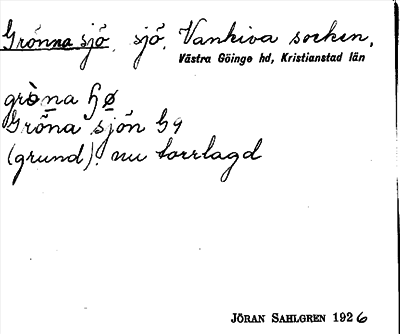 Grönna sjö, sjö, Vankiva socken,
Västra Göinge hd, Kristianstad län
gròna
Gröna sjön G9
(grund). nu torrlagd
JÖRAN SAHLGREN 1926